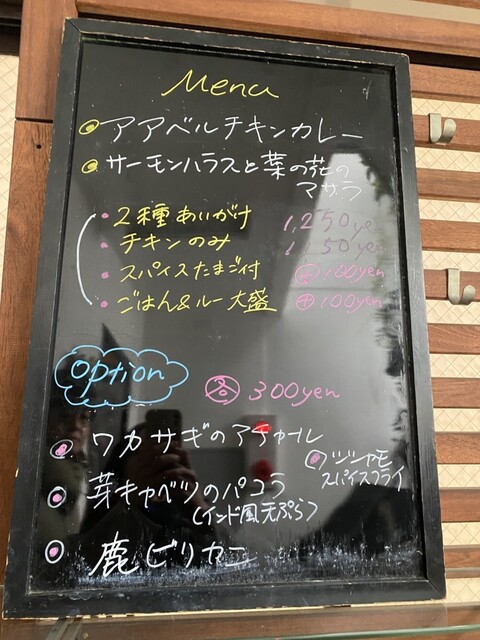 Menu
アアベルチキンカレー
サーモンハラスと菜の花の
マサラ
2種あいがけ 1,250yen
チキンのみ 1,150yen
スパイスたまご付 ⊕100yen
ごはん&ルー大盛 ⊕100yen
option 各 300yen
ワカサギのアチャール
芽キャベツのパコラ
(インド風天ぷら)
シシャモ
スパイスフライ
鹿ビリカニ